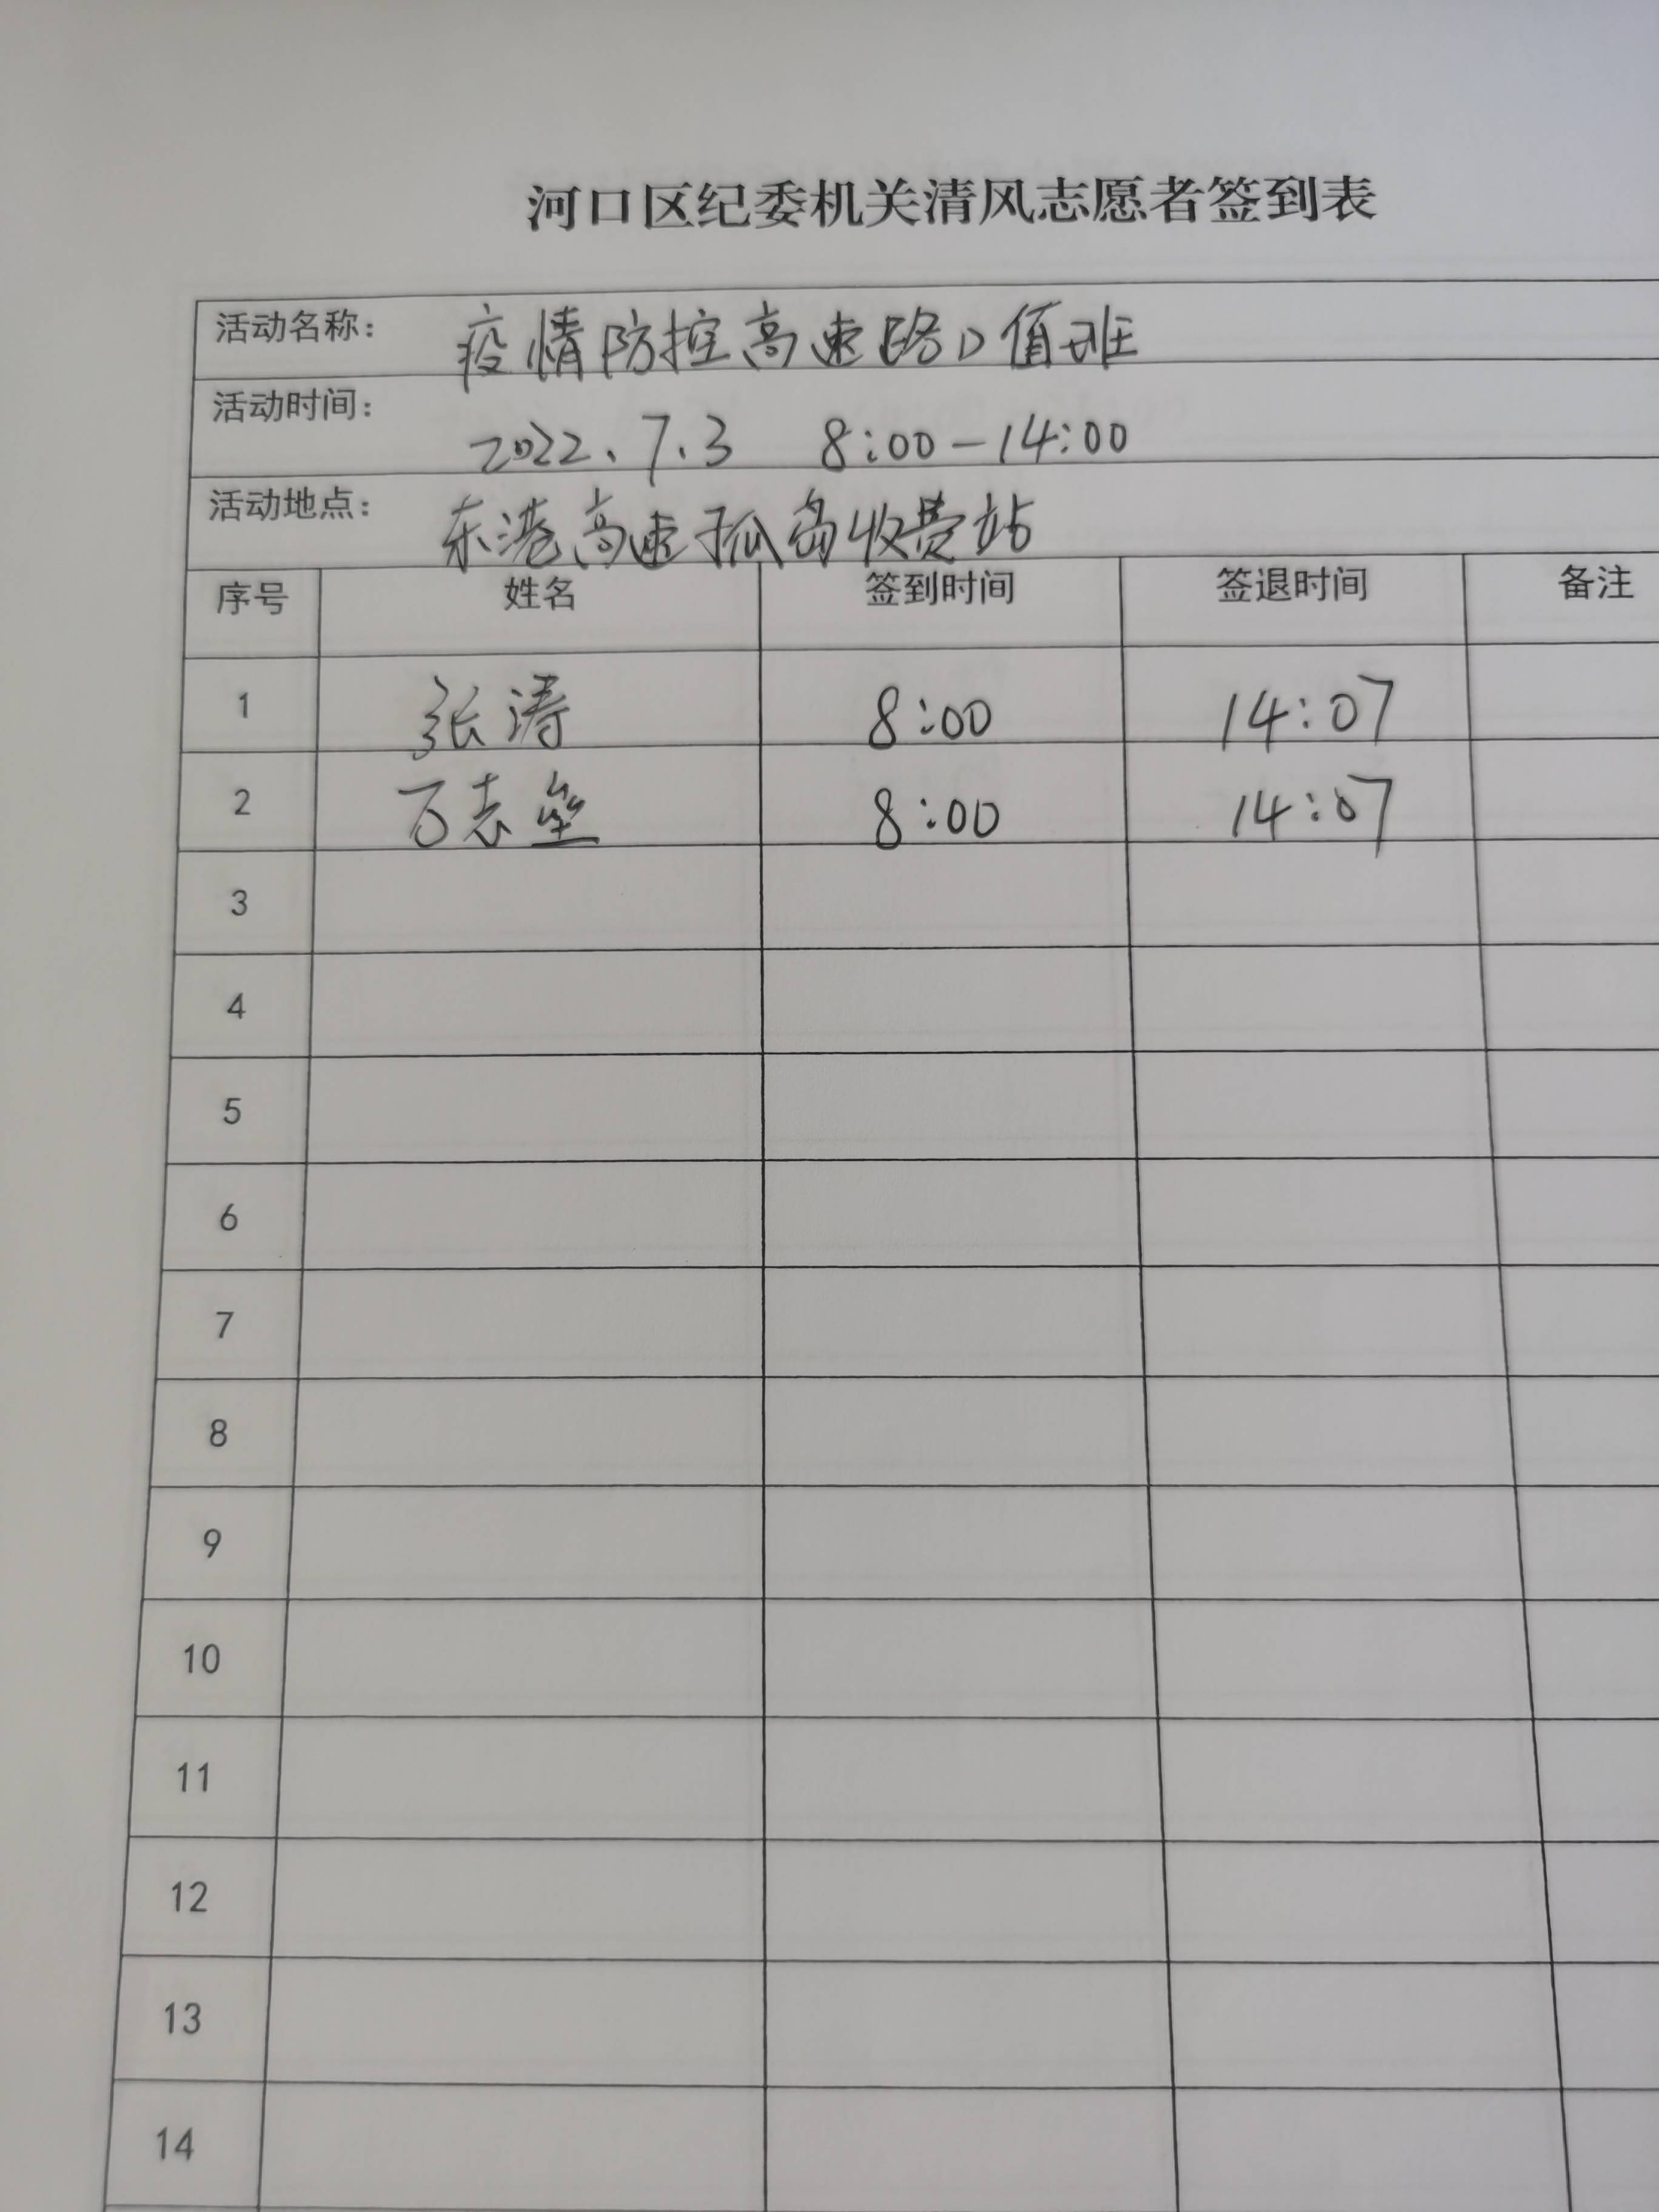 河口区纪委机关清风志愿者签到表
活动名称： 疫情防控高速路口值班
活动时间： 2022.7.3 8:00-14:00
活动地点： 东港高速孤岛收费站
序号 姓名 签到时间 签退时间 备注
1 张涛 8:00 14:07
2 万志 8:00 14:07
3
4
5
6
7
8
9
10
11
12
13
14